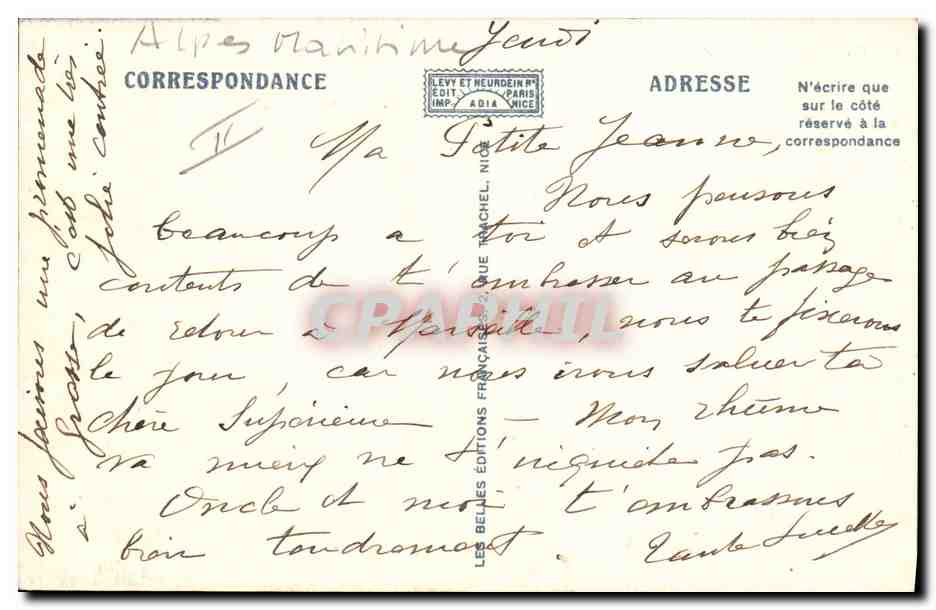 Alpes Maritime
Jeudi
CORRESPONDANCE
LEVY ET NEURDEIN Rs
ÉDIT. PARIS
IMP. ADIA NICE
ADRESSE
N'écrire que
sur le côté
réservé à la
correspondance
II
Ma Petite Jeanne,
Nous pensons
beaucoup a toi et serons bien
contents de t'embrasser au passage
de retour à Marseille, nous te fixerons
le jour, car nous irons saluer ta
chère Supérieure – Mon rhûme
va mieux ne t'inquiète pas.
Oncle et moi t'embrassons
bien tendrement.
Tante Lucette
Nous faisons une promenade
à Grasse, c'est une très
jolie contrée.
LES BELLES ÉDITIONS FRANÇAISES. 2, RUE TRACHEL, NICE
CPAPHIL